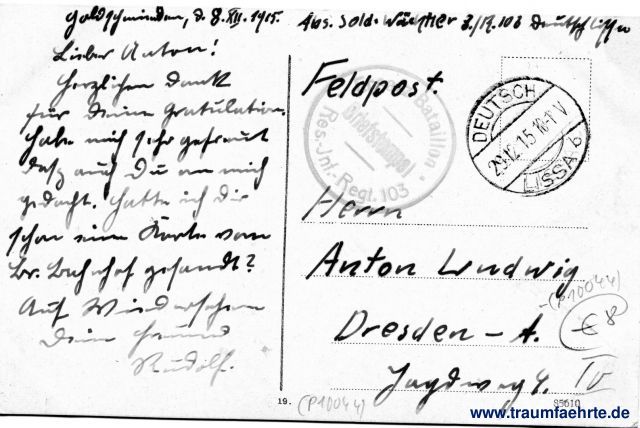 Goldschmieden, d. 8. XII. 1915.
Abs. Sold. Wächtler 3./R. 103 Deutsch Lissa
Lieber Anton!
Herzlichen Dank
für Deine Gratulation.
Habe mich sehr gefreut
daß auch Du an mich
gedacht. Hatte ich dir
schon eine Karte vom
Br. Bahnhof gesandt?
Auf Wiedersehen
Dein Freund
Rudolf.
Feldpost.
Bataillon
Briefstempel
Res.-Inf.-Regt. 103
DEUTSCH
12.15 10-11V
LISSA b
Herrn
Anton Ludwig
(P10044)
Dresden - A.
€ 8
Jagdweg 4. IV
19.
(P10044)
S5610
www.traumfaehrte.de